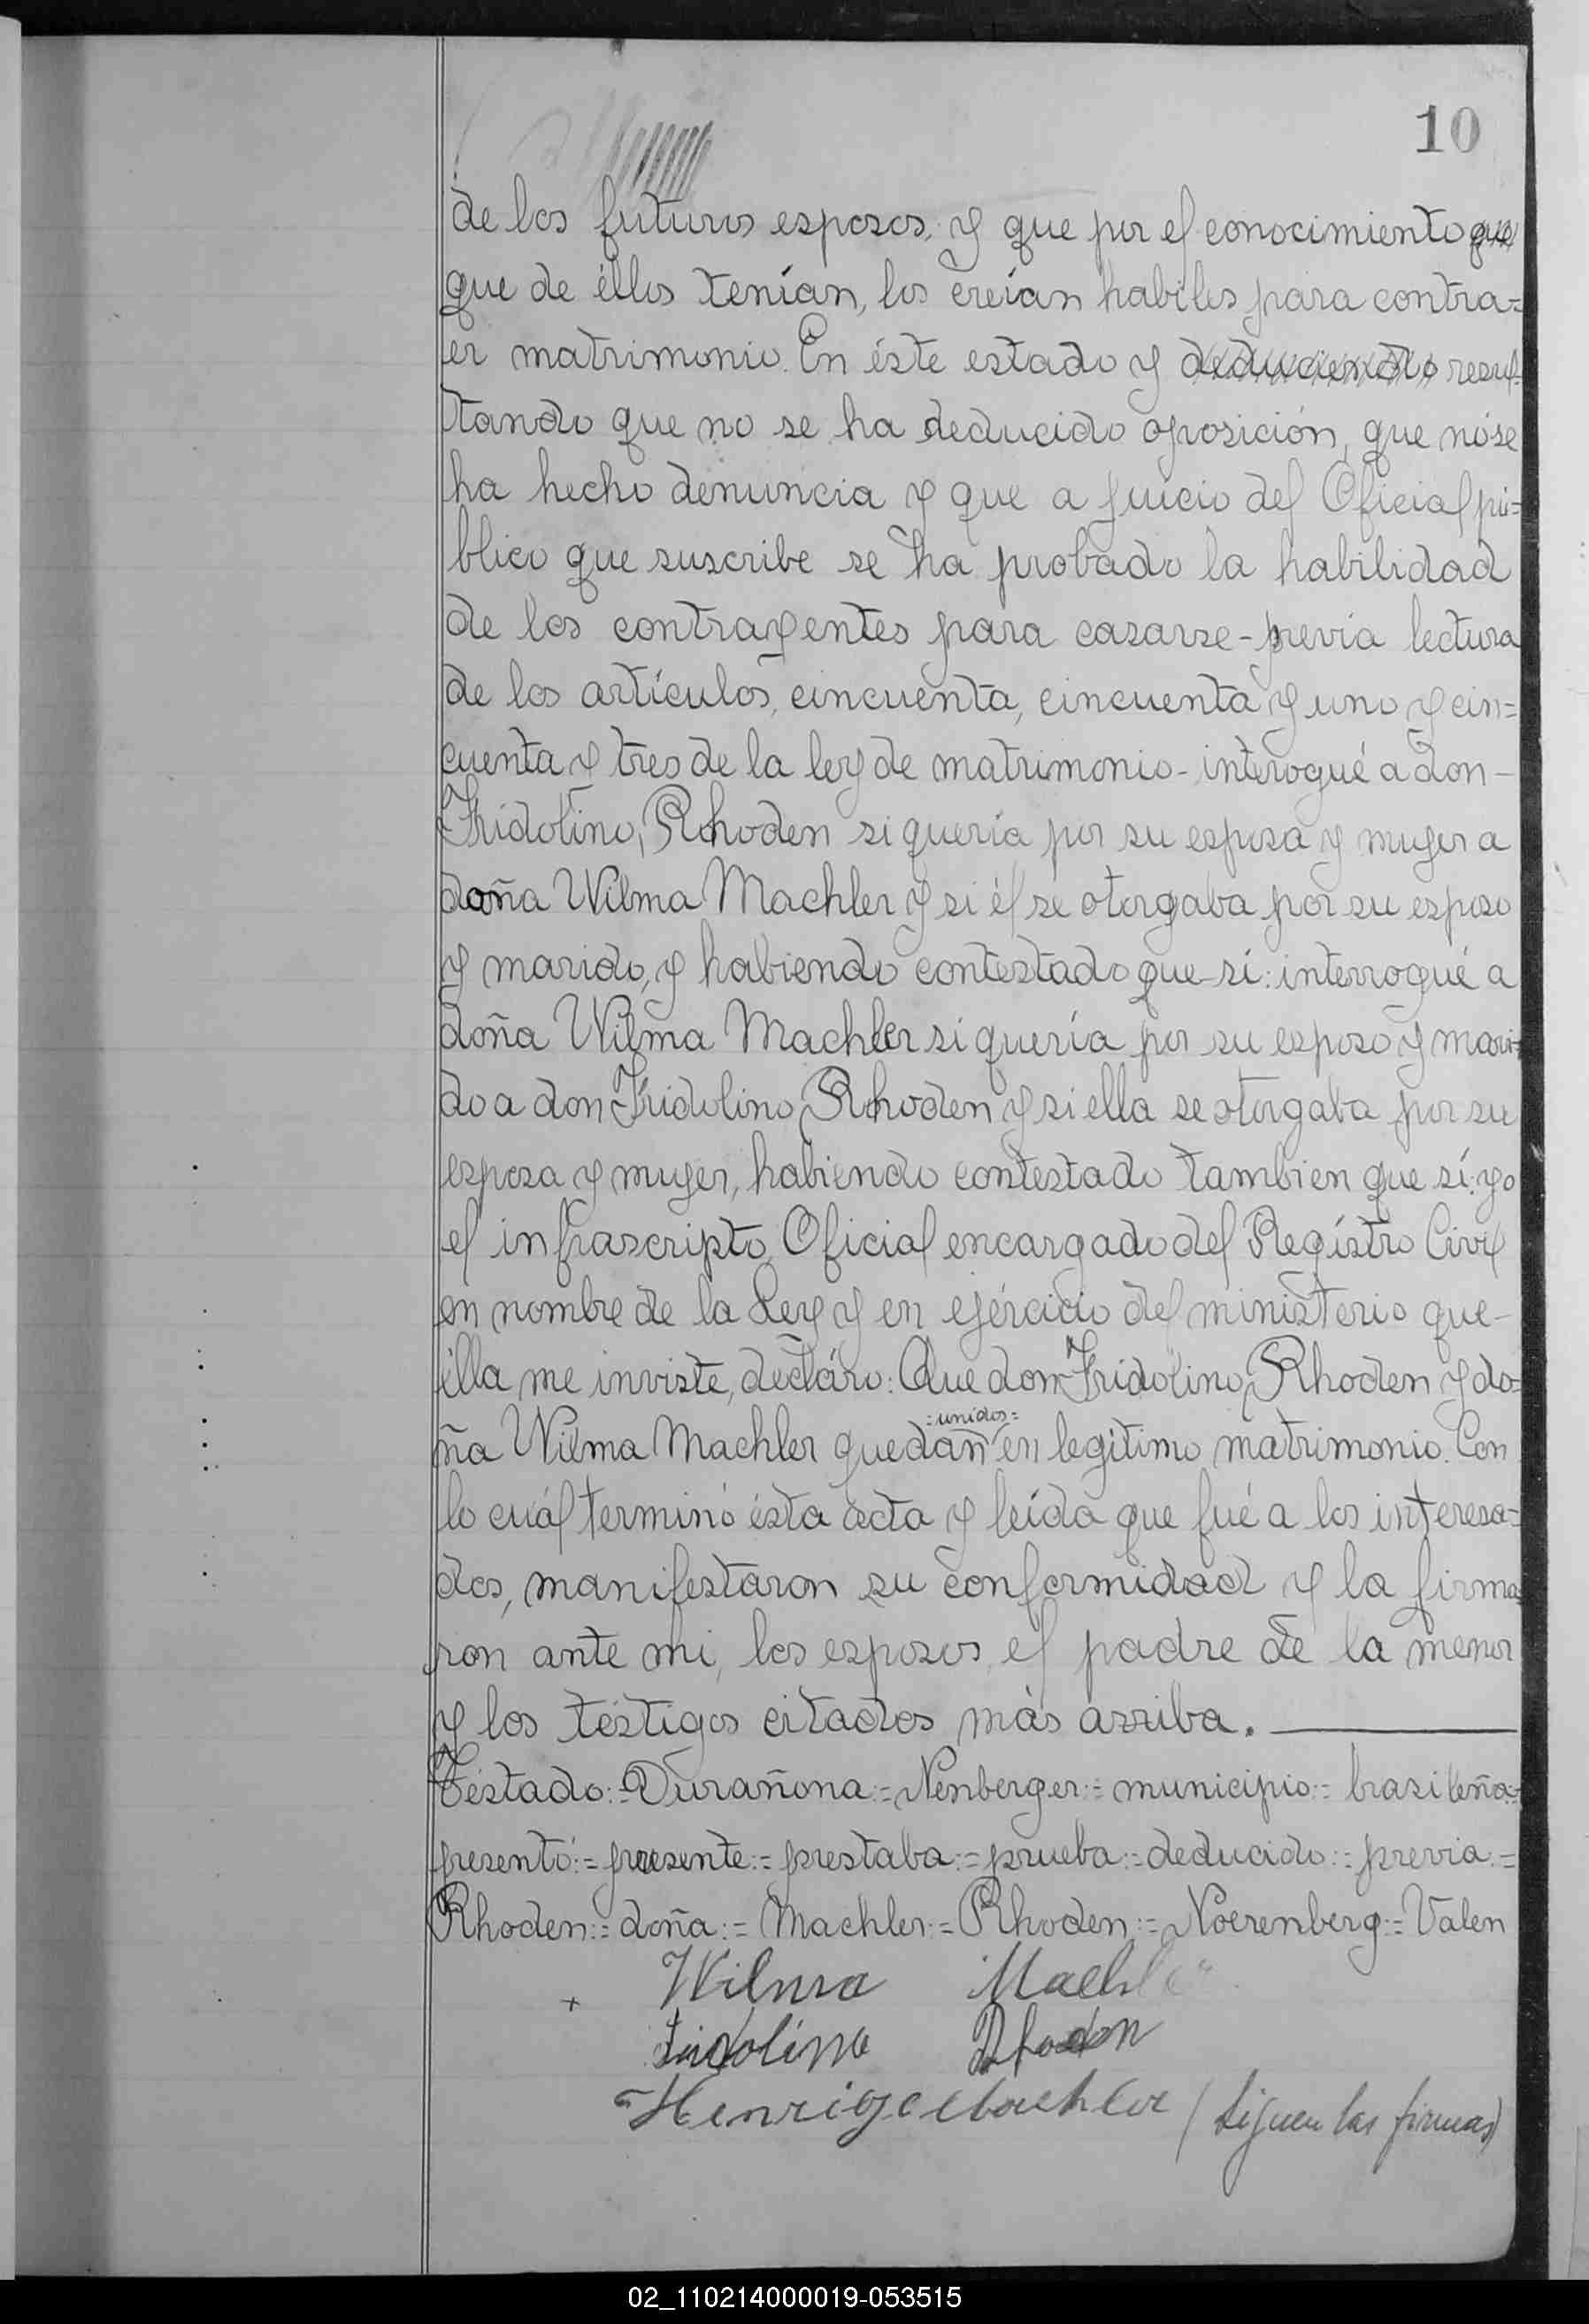 10
de los futuros esposos, y que por el conocimiento que
que de éllos tenían, los creían habiles para contra=
er matrimonio. En éste estado y deduciendo resul-
tando que no se ha deducido oposición, que nó se
ha hecho denuncia y que a juicio del Oficial pú=
blico que suscribe se ha probado la habilidad
de los contrayentes para casarse-previa lectura
de los artículos, cincuenta, cincuenta y uno y cin=
cuenta y tres de la ley de matrimonio-interogué a don-
Fridolino, Rhoden si quería por su esposa y mujer a
doña Wilma Machler y si él se otorgaba por su esposo
y marido, y habiendo contestado que si: interrogué a
doña Wilma Machler si quería por su esposo y mari=
do a don Fridolino, Rhoden y si ella se otorgaba por su
esposa y mujer, habiendo contestado tambien que sí: yo
el infrascripto, Oficial encargado del Regístro Civil
en nombre de la Ley y en ejércicio del ministerio que-
élla me inviste, decláro: Que don Fridolino, Rhoden y do=
=unidos=
ña Wilma Machler quedan en legítimo matrimonio. Con
lo cuál terminó ésta acta y leída que fué a los interesa=
dos, manifestaron su conformidad y la firma
ron ante mi, los esposos, el padre de la menor
y los téstigos citados más arriba.
Téstado:=Durañona:=Nenberger:=municipio:=brasileña:=
presentó:=presente:=prestaba:=prueba:=deducido:=previa:=
Rhoden:=doña:=Machler:=Rhoden:=Noerenberg:=Valen
+ Wilma Machler
Fridolino Rhoden
Henrique Machler (Siguen las firmas)
02_110214000019-053515